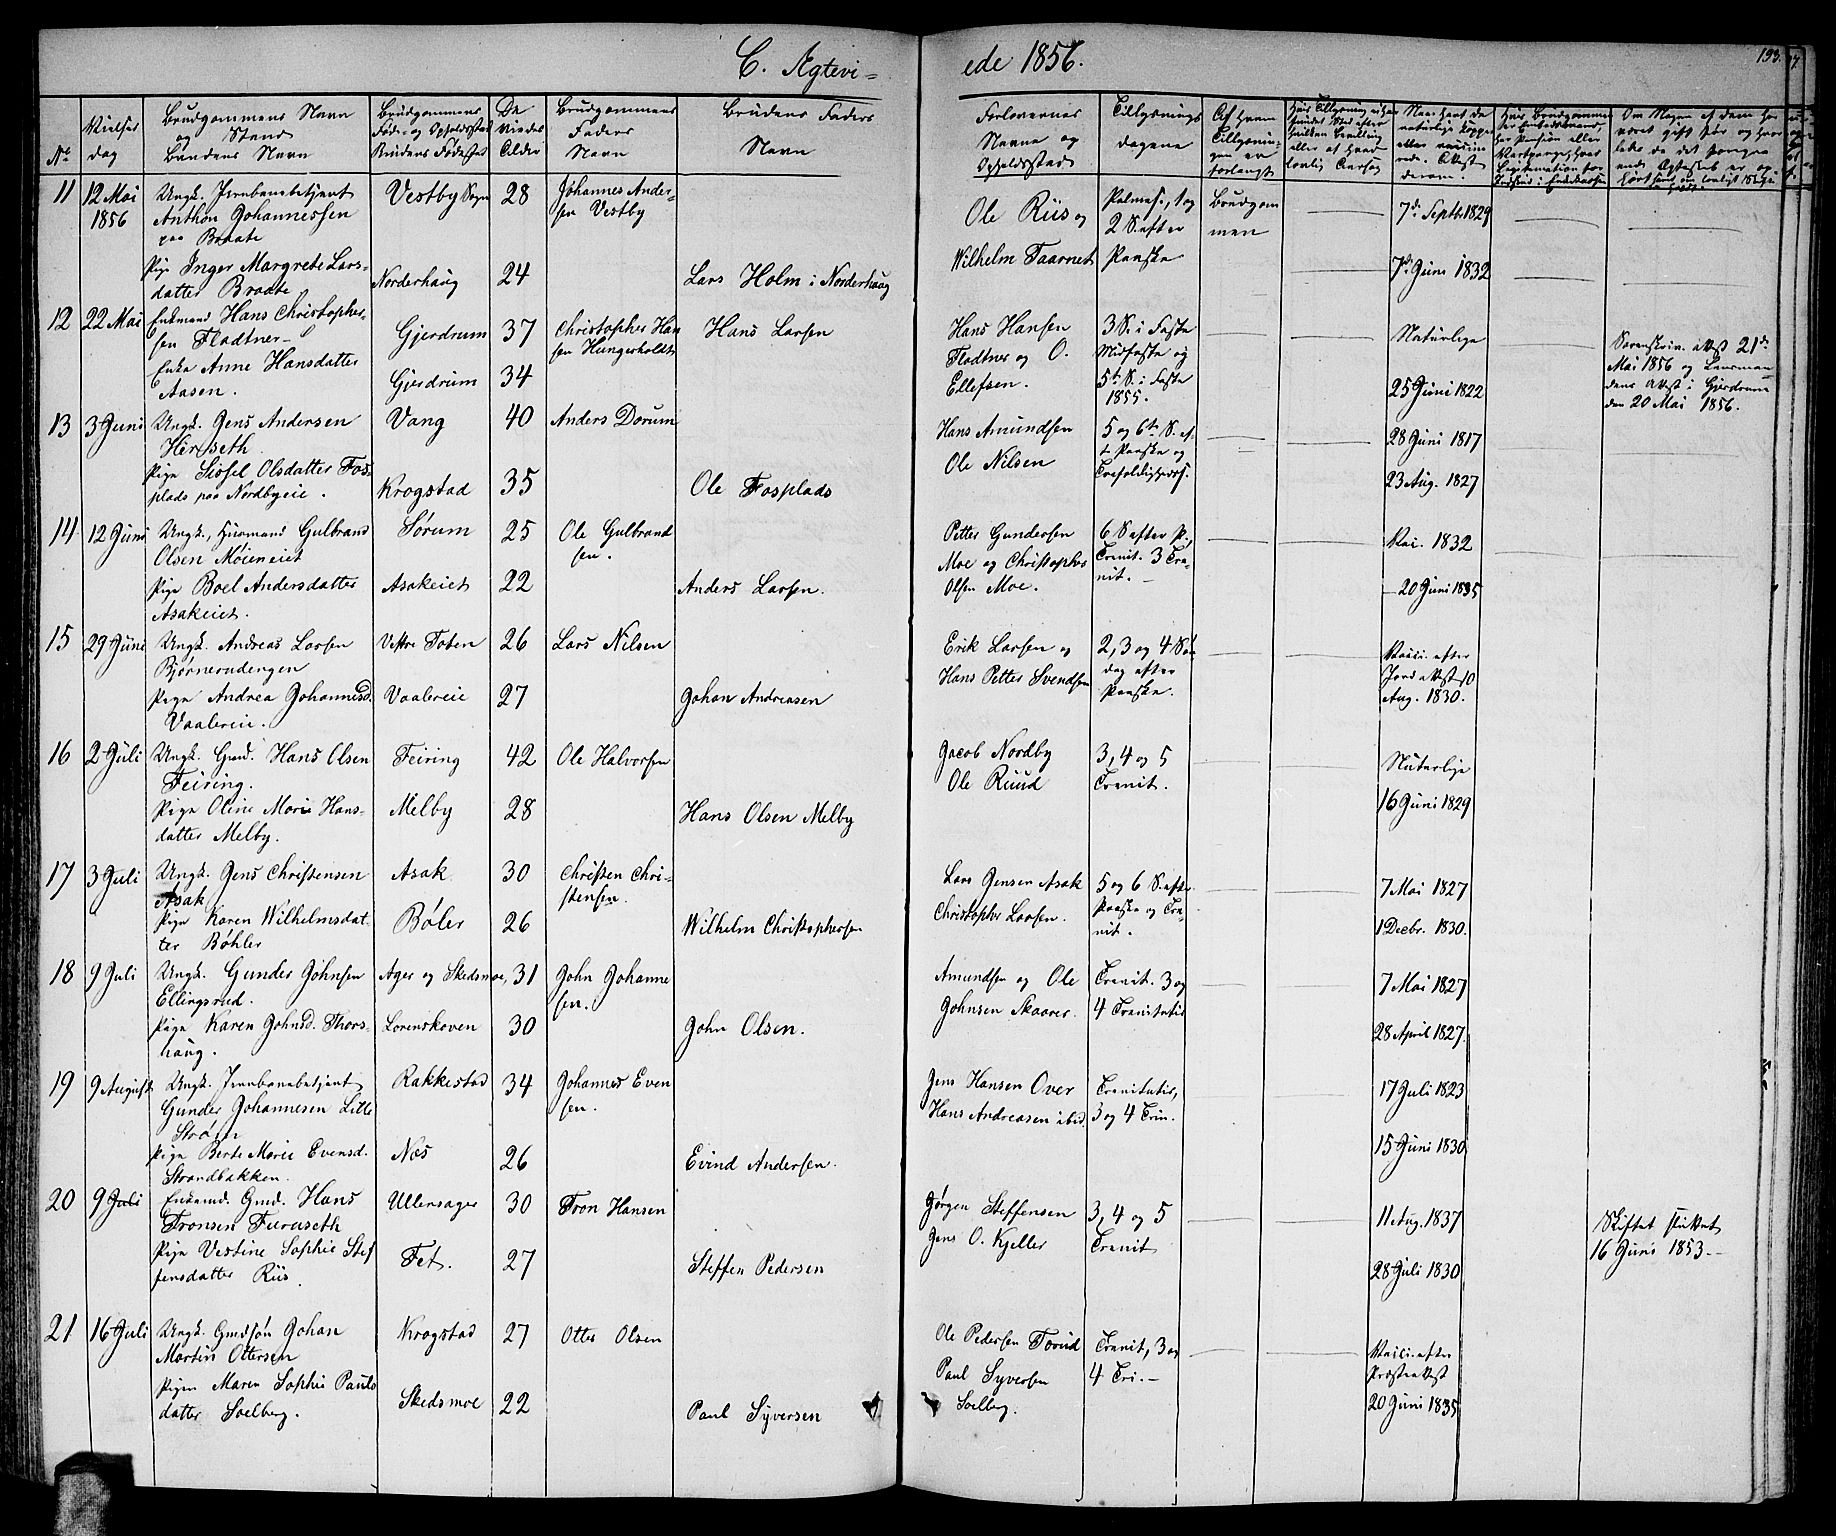 C. Ægtevi- ede 1856.
193.
No
Vielses dag
Brudgommens Navn og Stand Brudens Navn
Brudgommens Føde- og Opholdssted Brudens Fødested
De Viedes Alder
Brudgommens Faders Navn
Brudens Faders Navn
Forlovernes Navne og Opholdssted
Tillysnings dagene
Af hvem Tillysningen er forlangt
11 12 Mai 1856
Ungk. Jernbanebetjent
Anthon Johannessen
paa Braate
Vestby Sogn 28
Johannes Ander-
sen Vestby
Ole Riis og
Wilhelm Taarnet
Palmes., 1 og
2 S. efter
Paaske
Brudgom
men
7de Septb. 1829
Pige Inger Margrete Lars-
datter Braate
Norderhaug 24
Lars Holm i Norderhaug
7de Juni 1832
12 22 Mai
Enkemand Hans Christopher-
sen Fladtner
Gjerdrum 37
Christopher Han
sen Hungerholdt
Hans Larsen
Hans Hansen
Fladtner og O.
Ellefsen.
3 S. i Faste
Midfaste og
5te S. i Faste
1855.
Naturlige
Enke Anne Hansdatter
Aasen.
Gjerdrum 34
25 Juni 1822
Sorenskriv. Attest 21de
Mai 1856 og Lensman-
dens Attest i Gjerdrum
den 20 Mai 1856.
13 3 Juni
Ungk. Jens Andersen
Herseth
Vang 40
Anders Dorum
Hans Amundsen
Ole Nilsen
5 og 6te S. ef-
t Paaske og
Trefoldighedsf.
28 Juni 1817
Pige Sissel Olsdatter Fos-
plads paa Nordbyeie.
Krogstad 35
Ole Fosplads
23 Aug. 1827
14 12 Juni
Ungk., Husmand Gulbrand
Olsen Moieneiet
Sørum 25
Ole Gulbrand
sen.
Petter Gundersen
Moe og Christopher
Olsen Moe.
6 S efter P.,
Trenit. 3 Tre-
nit.
Vaci. 1832
Pige Boel Andersdatter
Asakeiet.
Asakeiet 22
Anders Larsen.
20 Juni 1835
15 29 Juni
Ungk. Andreas Larsen
Bjørnerudengen
Vestre Toten 26
Lars Nilsen
Erik Larsen og
Hans Petter Svendsen
2, 3 og 4 Søn
dag efter
Paaske.
Vaici. efter
Jord Attest 10
Aug. 1830.
Pige Andrea Johannesd.
Vaalereie.
Vaalereie 27
Johan Andreasen
16 2 Juli
Ungk. Gmd. Hans Olsen
Feiring.
Feiring 42
Ole Halvorsen
Jacob Nordby
Ole Ruud
3, 4 og 5
Trenit.
Naturlige
Pige Oline Marie Hans-
datter Melby.
Melby 28
Hans Olsen Melby
16 Juni 1829
17 3 Juli
Ungk. Jens Christensen
Asak
Asak 30
Christen Chri-
stensen.
Lars Jensen Asak
Christopher Larsen.
5 og 6 S. eft.
Paaske og Tre-
nit.
7 Mai 1827
Pige Karen Wilhelmsdat-
ter Bøhler
Bøler 26
Wilhelm Christophersen
1 Decbr. 1830.
18 9 Juli
Ungk. Gunder Johnsen
Ellingsrud.
Ager og Skedsmoe, 31
John Johanne
sen.
Amundsen og Ole
Johnsen Skaarer.
Trenit. 3 og
4 Trenitatis
7 Mai 1827
Pige Karen Johnsd. Thors-
haug.
Lorenskoven 30
John Olsen.
28 April 1827.
19 9 August
Ungk. Jernbanebetjent
Gunder Johannesen Lille
Strøm
Rakkestad 34
Johannes Even
sen.
Jens Hansen Over
Hans Andreasen ibid.
Trenitatis,
3 og 4 Trin.
17 Juli 1823
Pige Berte Marie Evensd.
Strandbakken.
Næs 26
Evind Andersen.
15 Juni 1830.
20 9 Juli
Enkemd. Gmd. Hans
Tronsen Furuseth
Ullensager 30
Tron Hansen
Jørgen Steffensen
Jens O. Kjeller
3, 4 og 5
Trenit
11 Aug. 1837
Skiftet sluttet
16 Juni 1853.
Pige Vestine Sophie Stef
fensdatter Riis.
Fet. 27
Steffen Pedersen
28 Juli 1830
21 16 Juli
Ungk. Gmdsøn Johan
Martin Ottersen
Krogstad 27
Otter Olsen
Ole Pedersen Torud
Paul Syversen
Soelberg.
Trenit, 3 og
4 Tri.
Vaici. efter
Præsteattest
20 Juni 1835
Pigen Maren Sophie Pauls
datter Soelberg.
Skedsmoe 22
Paul Syversen